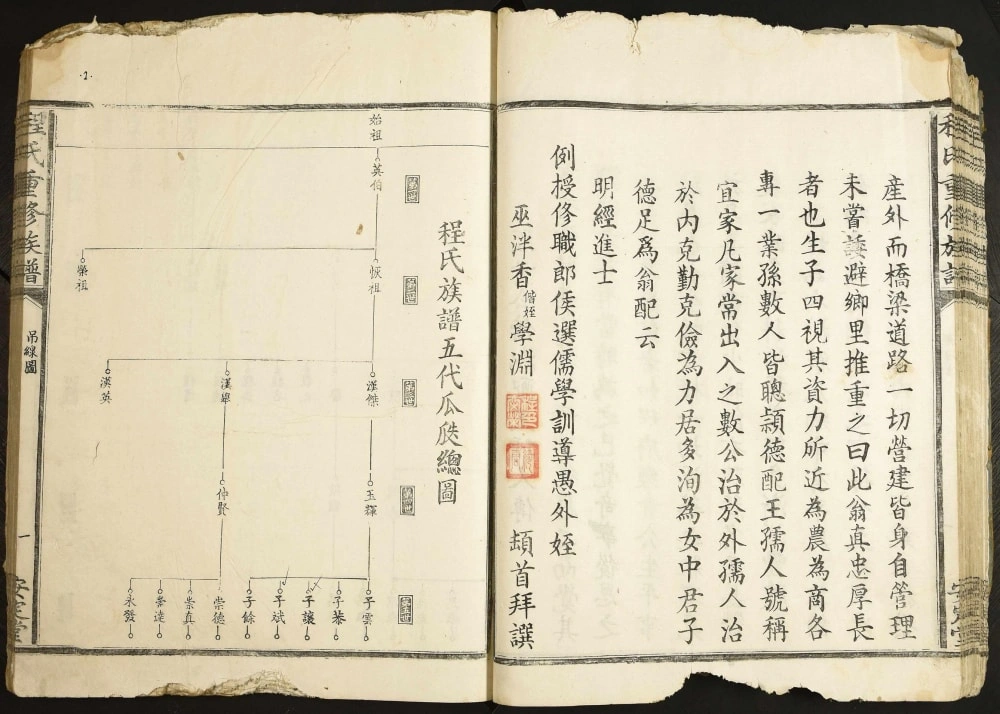 程氏重修族譜
安定堂
產外而橋梁道路一切營建皆身自管理
未嘗諉避鄉里推重之曰此翁真忠厚長
者也生子四視其資力所近為農為商各
專一業孫數人皆聰頴德配王孺人號稱
宜家凡家常出入之數公治於外孺人治
於內克勤克儉為力居多洵為女中君子
德足爲翁配云
明經進士
例授修職郎侯選儒學訓導愚外姪
巫泮香偕姪學淵 頓首拜譔
程氏族譜五代瓜瓞總圖
始祖
英伯
恢祖
榮祖
漢傑
漢舉
漢英
玉輝
仲賢
子雲
子恭
子讓
子斌
子餘
崇德
崇真
崇達
永發
程氏重修族譜
吊線圖
一
安定堂